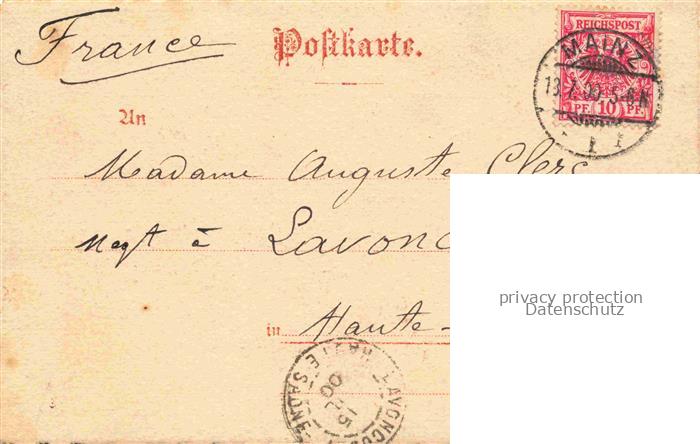 France
Postkarte.
REICHSPOST
MAINZ
PF. 10 PF.
An
Madame Auguste Clerc
Negt à Lavonc
in Haute-
LAVONCO
HAUTE SAONE
15
00
privacy protection
Datenschutz